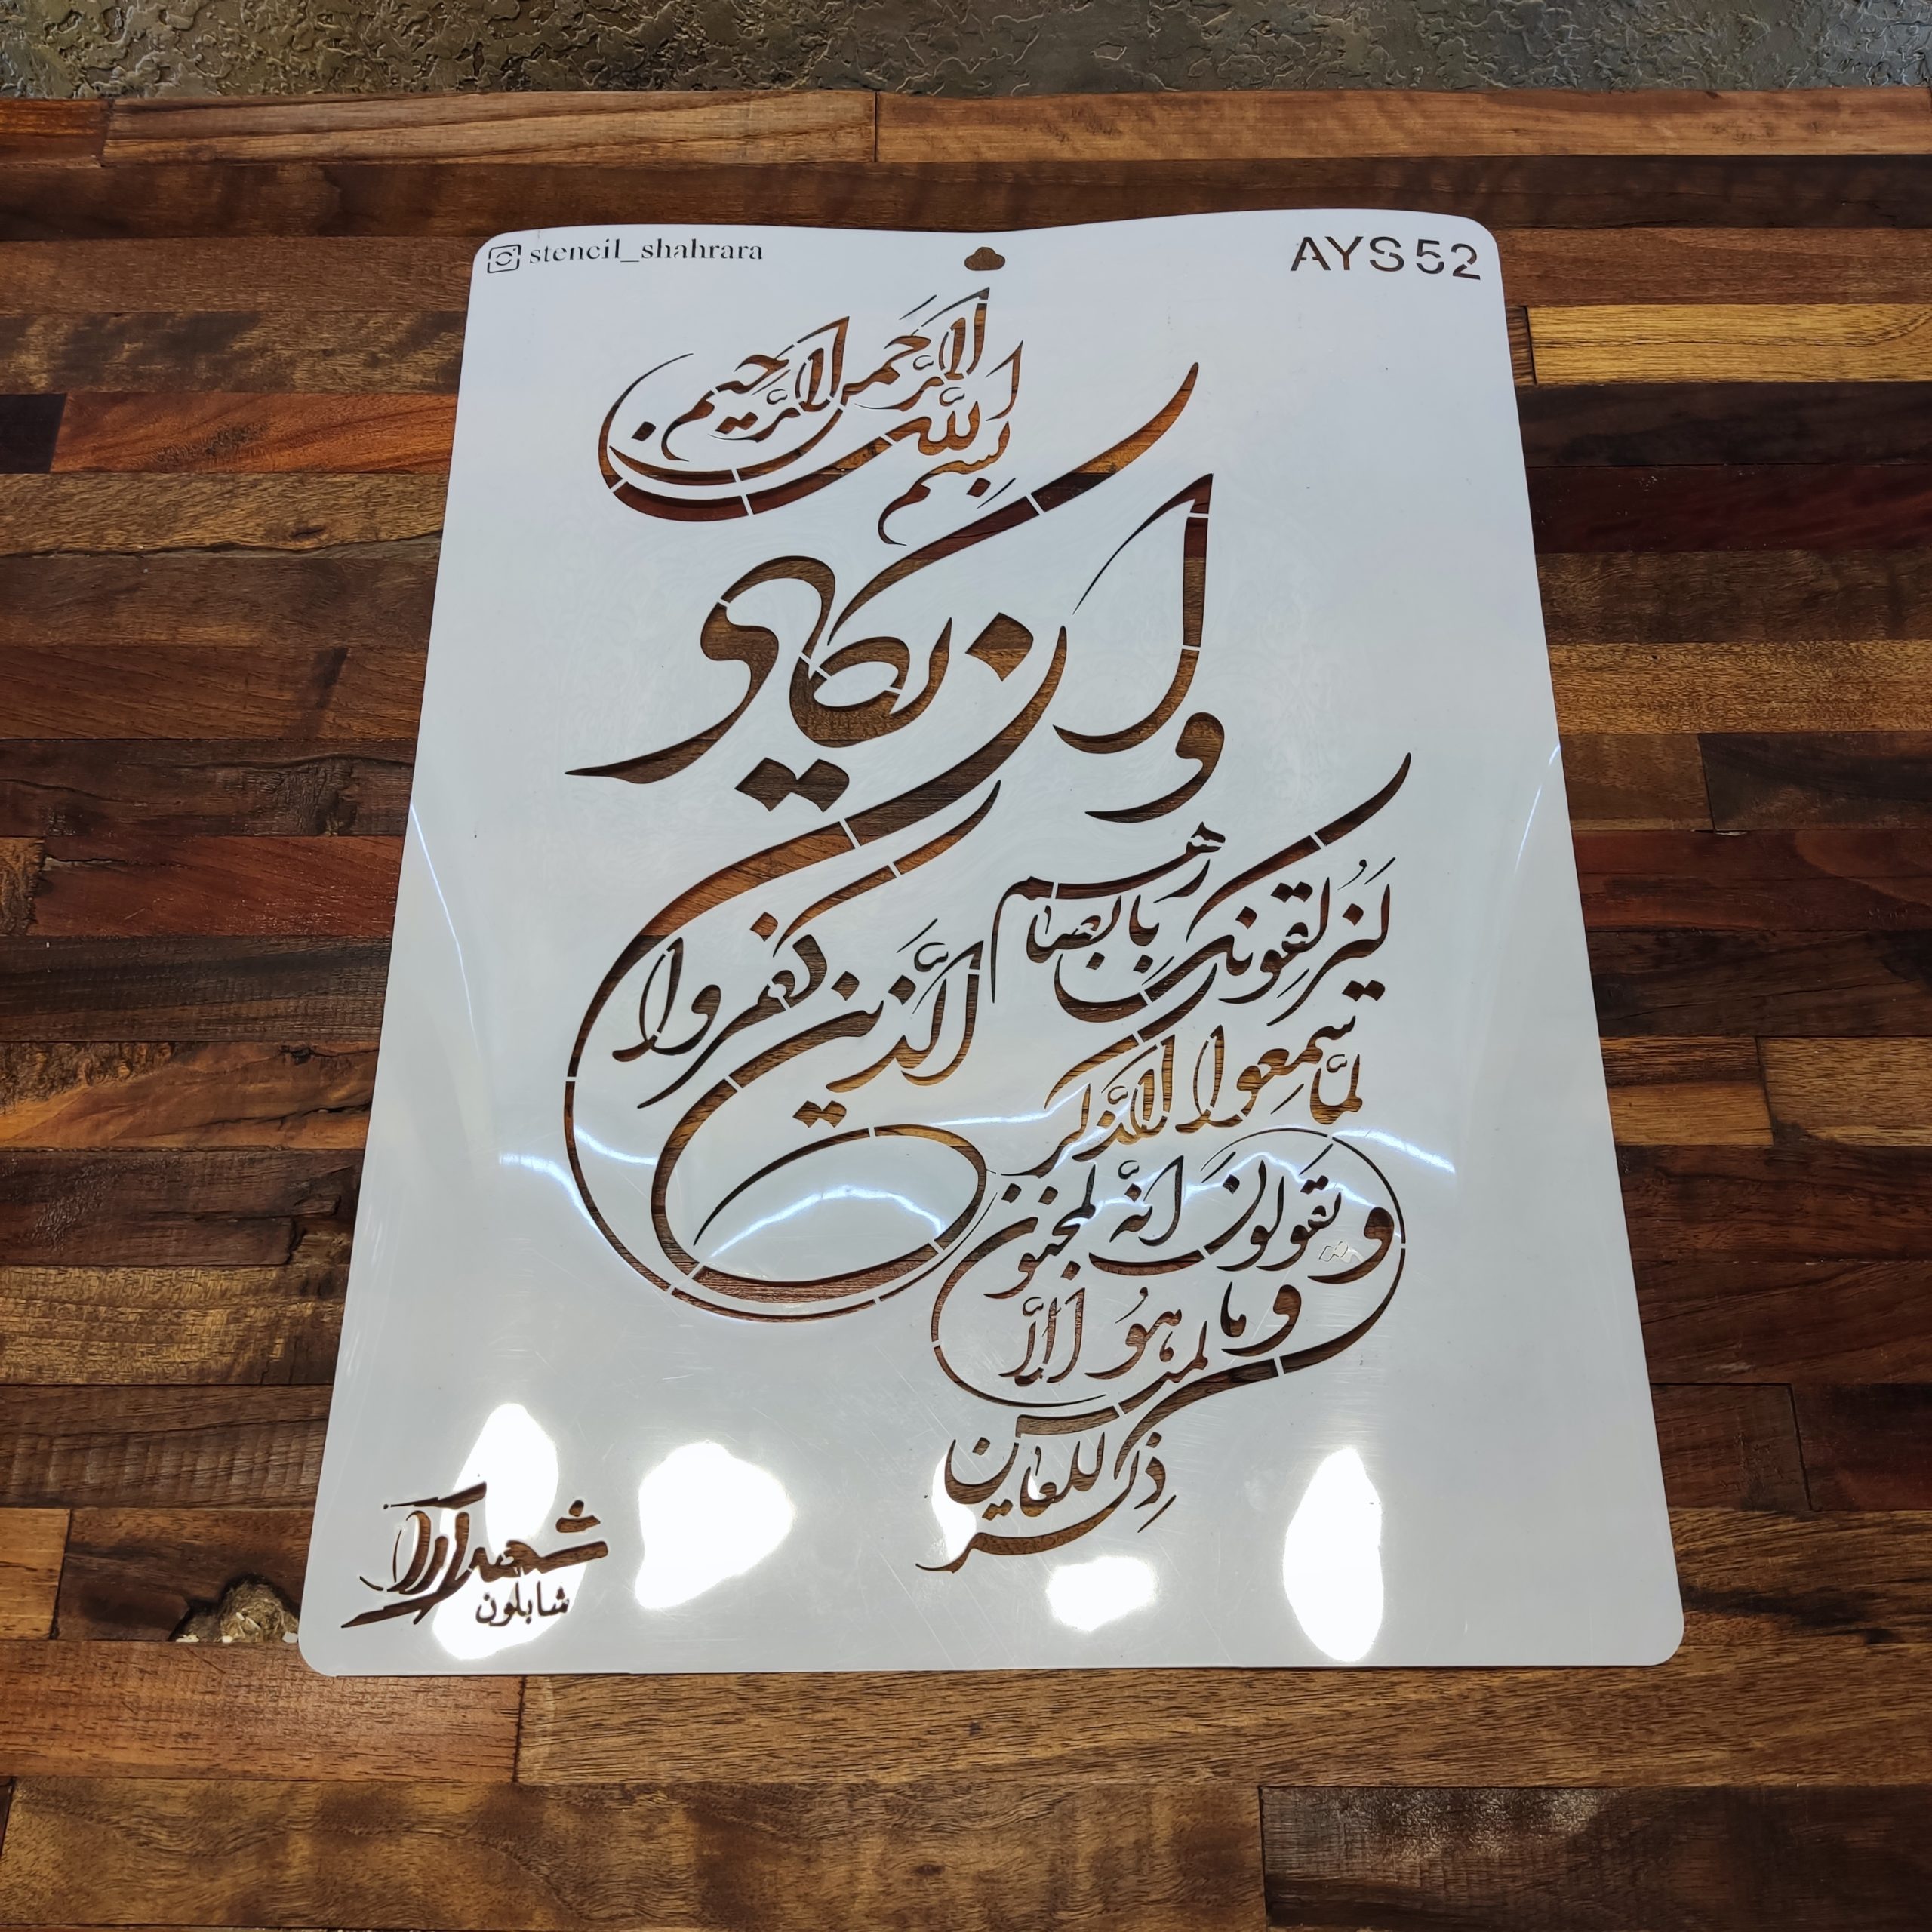 stencil_shahrara
AYS52
بسم الله الرحمن الرحیم
وان یکاد
الذین کفروا
لیزلقونک بابصارهم
لما سمعوا الذکر
و یقولون انه لمجنون
و ما هو الا
ذکر للعالمین
شهرآرا
شابلون